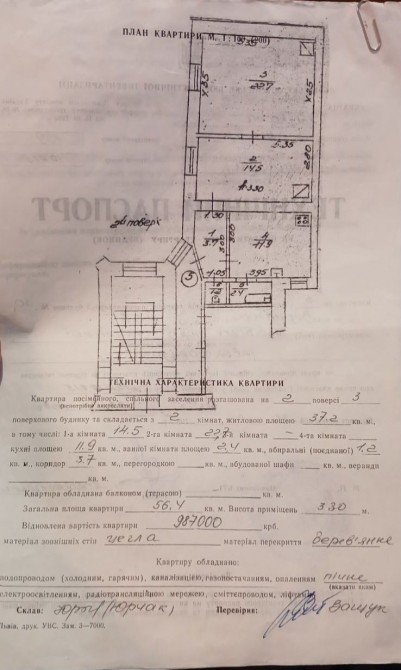 ПЛАН КВАРТИРИ М. 1 : 100 (200)
5.35
3
22.7
4.25
4.25
5.35
2
14.5
2.80
h 3.30
1.30
2й поверх
1
3.7
3.00
3.00
4
11.9
5
1.05
3.95
2.4
1.2
ТЕХНІЧНА ХАРАКТЕРИСТИКА КВАРТИРИ
Квартира посімейного, спільного заселення розташована на 2 поверсі 3
(непотрібне закреслити)
поверхового будинку та складається з 2 кімнат, житловою площею 37.2 кв. м,
в тому числі: 1-а кімната 14.5 2-га кімната 22.7 кімната – 4-та кімната
кухні площею 11.9 кв. м, ванної кімнати площею 2.4, вбиральні (поєднаної) 1.2
кв. м., коридор 3.7 кв. м., перегородкою кв. м., вбудованої шафи кв. м., веранди
кв. м.
Квартира обладнана балконом (терасою) кв. м.
Загальна площа квартири 56,4 кв. м. Висота приміщень 330
Відновлена вартість квартири 987000 крб.
матеріал зовнішніх стін цегла матеріал перекриття дерев'янне
Квартиру обладнано:
водопроводом (холодним, гарячим), каналізацією, газопостачанням, опаленням пічне
(вказати яким)
електроосвітленням, радіотрансляційною мережею, сміттєпроводом, ліфтом
Склав: Перевірив: Ващук
Львів, друк. УВС. Зам. 3—7000.